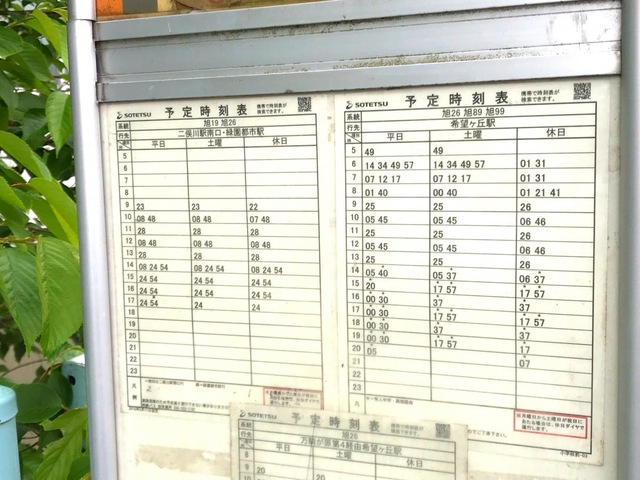 SOTETSU 予定時刻表 携帯で時刻表が
検索できます。
系統 旭19 旭26
行先 二俣川駅南口・緑園都市駅
平日 土曜 休日
5
6
7
8
9 23 23 22
10 08 48 08 48 07 48
11 28 28 28
12 08 48 08 48 08 48
13 28 28 28
14 08 24 54 08 24 54 08 24 54
15 24 54 24 54 24 54
16 24 54 24 54 24 54
17 24 54 24 24
18
19
20
21
22
23
凡例
SOTETSU 予定時刻表 携帯で時刻表が
検索できます。
系統 旭26 旭89 旭99
行先 希望ヶ丘駅
平日 土曜 休日
5 49 49
6 14 34 49 57 14 34 49 57 01 31
7 07 12 17 07 12 17 01 31
8 01 40 00 40 01 21 41
9 25 25 26
10 05 45 05 45 06 46
11 25 25 26
12 05 45 05 45 06 46
13 25 25 26
14 05 40 05 37 06 37
15 20 17 57 17 57
16 00 30 37 37
17 00 30 17 57 17 57
18 00 30 37 37
19 00 30 17 57 17
20 05 07
21
22
23
凡例
※月曜日から土曜日が祝日に
あたる場合は、休日ダイヤで
運行します。
SOTETSU 予定時刻表
系統 旭26
行先 万騎が原第4経由希望ヶ丘駅
平日 土曜 休日
8
9 20 20 20